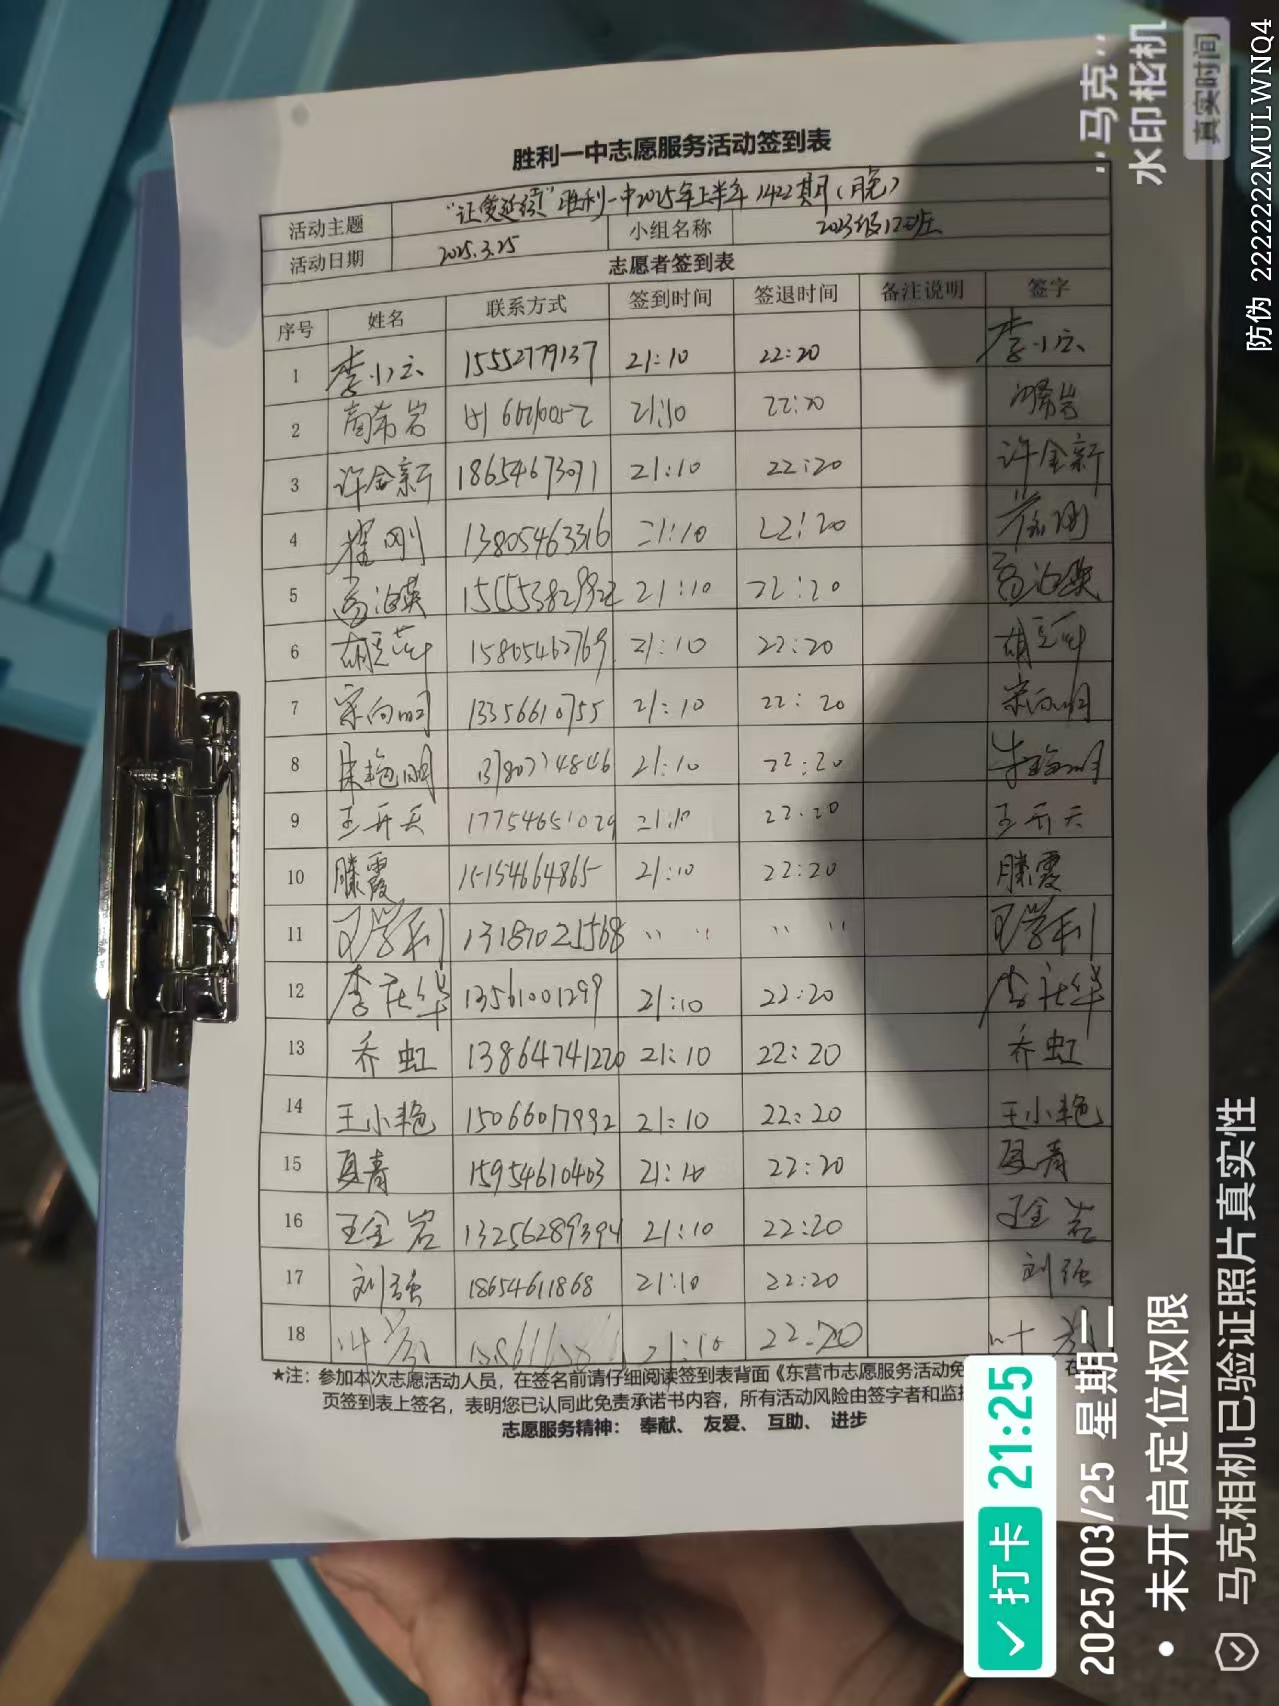 胜利一中志愿服务活动签到表
活动主题 "让爱延续"胜利一中2025年上半年1422期(晚)
活动日期 2025.3.25 小组名称 2023级12班
志愿者签到表
序号 姓名 联系方式 签到时间 签退时间 备注说明 签字
1 李小云 15552779137 21:10 22:20 李小云
2 21:10 22:20
3 许金新 18654673071 21:10 22:20 许金新
4 翟刚 13805463316 21:10 22:20 翟刚
5 21:10 22:20
6 15805462769 21:10 22:20
7 宋向明 13356610755 21:10 22:20 宋向明
8 朱艳明 21:10 22:20 朱艳明
9 王开天 17754651029 21:10 22:20 王开天
10 滕霞 15154664865 21:10 22:20 滕霞
11 13187025568 " " " "
12 13561001299 21:10 22:20
13 乔虹 13864741220 21:10 22:20 乔虹
14 王小艳 15066017992 21:10 22:20 王小艳
15 夏青 15954610403 21:10 22:20 夏青
16 王金岩 13256289394 21:10 22:20 王金岩
17 刘强 18654611868 21:10 22:20 刘强
18 21:10 22:20
*注: 参加本次志愿活动人员,在签名前请仔细阅读签到表背面《东营市志愿服务活动免 在
页签到表上签名,表明您已认同此免责承诺书内容,所有活动风险由签字者和监
志愿服务精神: 奉献、 友爱、 互助、 进步
马克
水印相机
真实时间
防伪 2222222MULWNQ4
打卡 21:25
2025/03/25 星期二
• 未开启定位权限
马克相机已验证照片真实性